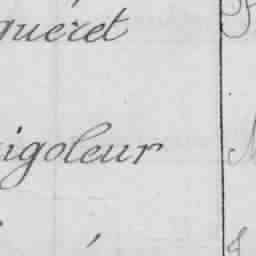 quéret
igoleur